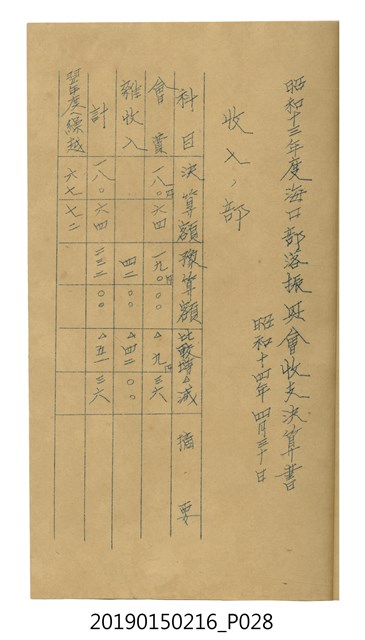 昭和十三年度海口部落振興會收支決算書
昭和十四年四月三十日
收入ノ部
科目 決算額 豫算額 比較増△減 摘要
會費 一八〇円六四 一九〇円〇〇 △九円三六
雜收入 四二〇〇 △四二〇〇
計 一八〇六四 二三二〇〇 △五一三六
翌年度繰越 六七七二
20190150216_P028